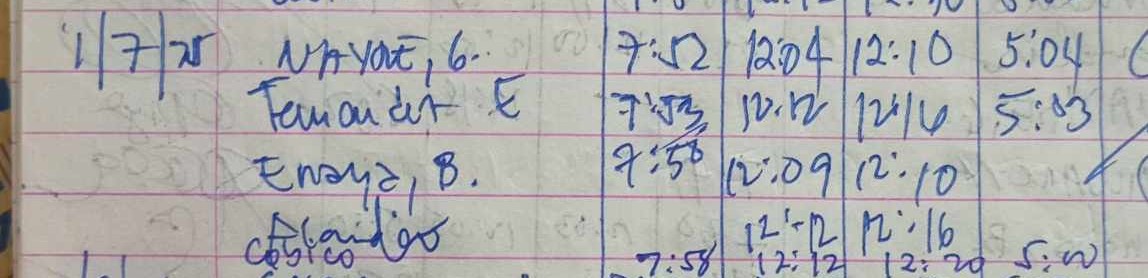 1/7/25 NAYVE, G. 7:52 12:04 12:10 5:04
Fernandez E 7:53 12:12 12:16 5:03
Enaya, B. 7:58 12:09 12:10
12:12 12:16
Cosico 7:58 12:12 12:20 5:00